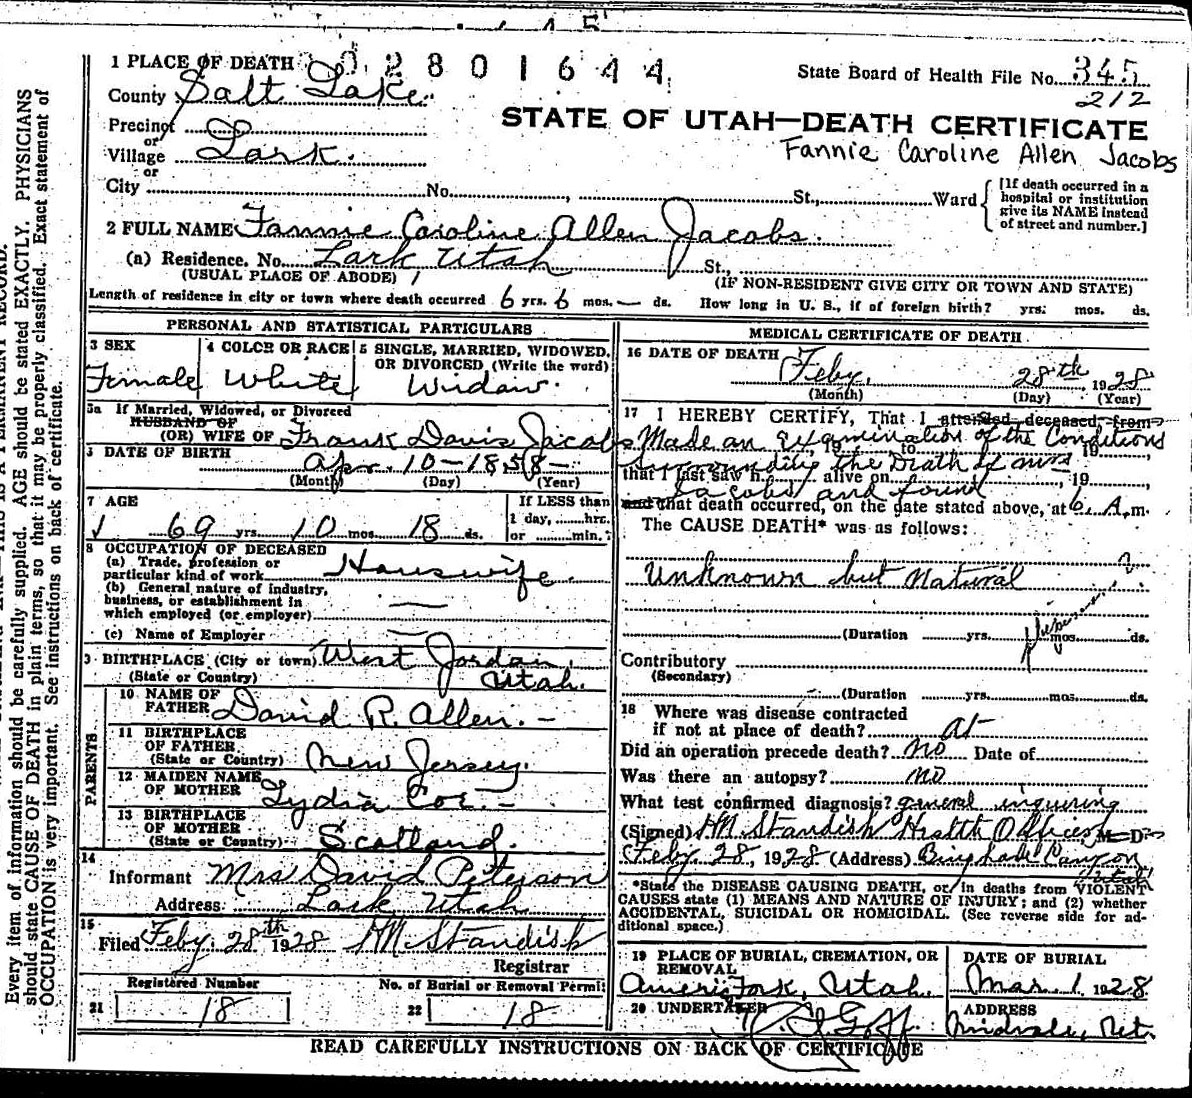 1 PLACE OF DEATH 02801644
State Board of Health File No. 345
212
County Salt Lake
STATE OF UTAH—DEATH CERTIFICATE
Fannie Caroline Allen Jacobs
Precinct
or
Village Lark.
or
City No. St., Ward
[If death occurred in a
hospital or institution
give its NAME instead
of street and number.]
2 FULL NAME Fannie Caroline Allen Jacobs.
(a) Residence. No. Lark Utah St.,
(USUAL PLACE OF ABODE) (IF NON-RESIDENT GIVE CITY OR TOWN AND STATE)
Length of residence in city or town where death occurred 6 yrs. 6 mos. — ds. How long in U. S., if of foreign birth? yrs. mos. ds.
PERSONAL AND STATISTICAL PARTICULARS
3 SEX
Female
4 COLOR OR RACE
White
5 SINGLE, MARRIED, WIDOWED,
OR DIVORCED (Write the word)
Widow.
5a If Married, Widowed, or Divorced
HUSBAND OF
(OR) WIFE OF Frank Davis Jacobs
DATE OF BIRTH Apr. 10—1858—
(Month) (Day) (Year)
7 AGE
69 yrs. 10 mos. 18 ds.
If LESS than
1 day, hrs.
or min.
8 OCCUPATION OF DECEASED
(a) Trade, profession or
particular kind of work Housewife.
(b) General nature of industry,
business, or establishment in
which employed (or employer) —
(c) Name of Employer —
9 BIRTHPLACE (City or town) West Jordan,
(State or Country) Utah.
PARENTS
10 NAME OF
FATHER David R. Allen. —
11 BIRTHPLACE
OF FATHER
(State or Country) New Jersey.
12 MAIDEN NAME
OF MOTHER Lydia Coe. —
13 BIRTHPLACE
OF MOTHER
(State or Country) Scotland.
14
Informant Mrs David Peterson
Address Lark, Utah
15
Filed Feby. 28th 1928 HM Standish
Registrar
Registered Number
21 18
No. of Burial or Removal Permit
22 18
MEDICAL CERTIFICATE OF DEATH
16 DATE OF DEATH Feby. 28th 1928
(Month) (Day) (Year)
17 I HEREBY CERTIFY, That I attended deceased from
Made an examination of the Conditions
, 19 to 19
surrounding the Death of Mrs
that I last saw h alive on , 19
Jacobs and found
and that death occurred, on the date stated above, at 6. A. m.
The CAUSE DEATH* was as follows:
Unknown but Natural ?
(Duration yrs. mos. ds.
Contributory
(Secondary)
(Duration yrs. mos. ds.
18 Where was disease contracted
if not at place of death? at
Did an operation precede death? No Date of
Was there an autopsy? no
What test confirmed diagnosis? general inquiring
(Signed) HM Standish Health Officer, M. D.
Feby. 28, 1928 (Address) Bingham Canyon
Utah
*State the DISEASE CAUSING DEATH, or, in deaths from VIOLENT
CAUSES state (1) MEANS AND NATURE OF INJURY; and (2) whether
ACCIDENTAL, SUICIDAL OR HOMICIDAL. (See reverse side for ad-
ditional space.)
19 PLACE OF BURIAL, CREMATION, OR
REMOVAL
Ameri Fork, Utah.
DATE OF BURIAL
Mar. 1 1928
20 UNDERTAKER
Goff
ADDRESS
Midvale, Ut.
READ CAREFULLY INSTRUCTIONS ON BACK OF CERTIFICATE
Every item of information should be carefully supplied. AGE should be stated EXACTLY. PHYSICIANS
should state CAUSE OF DEATH in plain terms, so that it may be properly classified. Exact statement of
OCCUPATION is very important. See instructions on back of certificate.